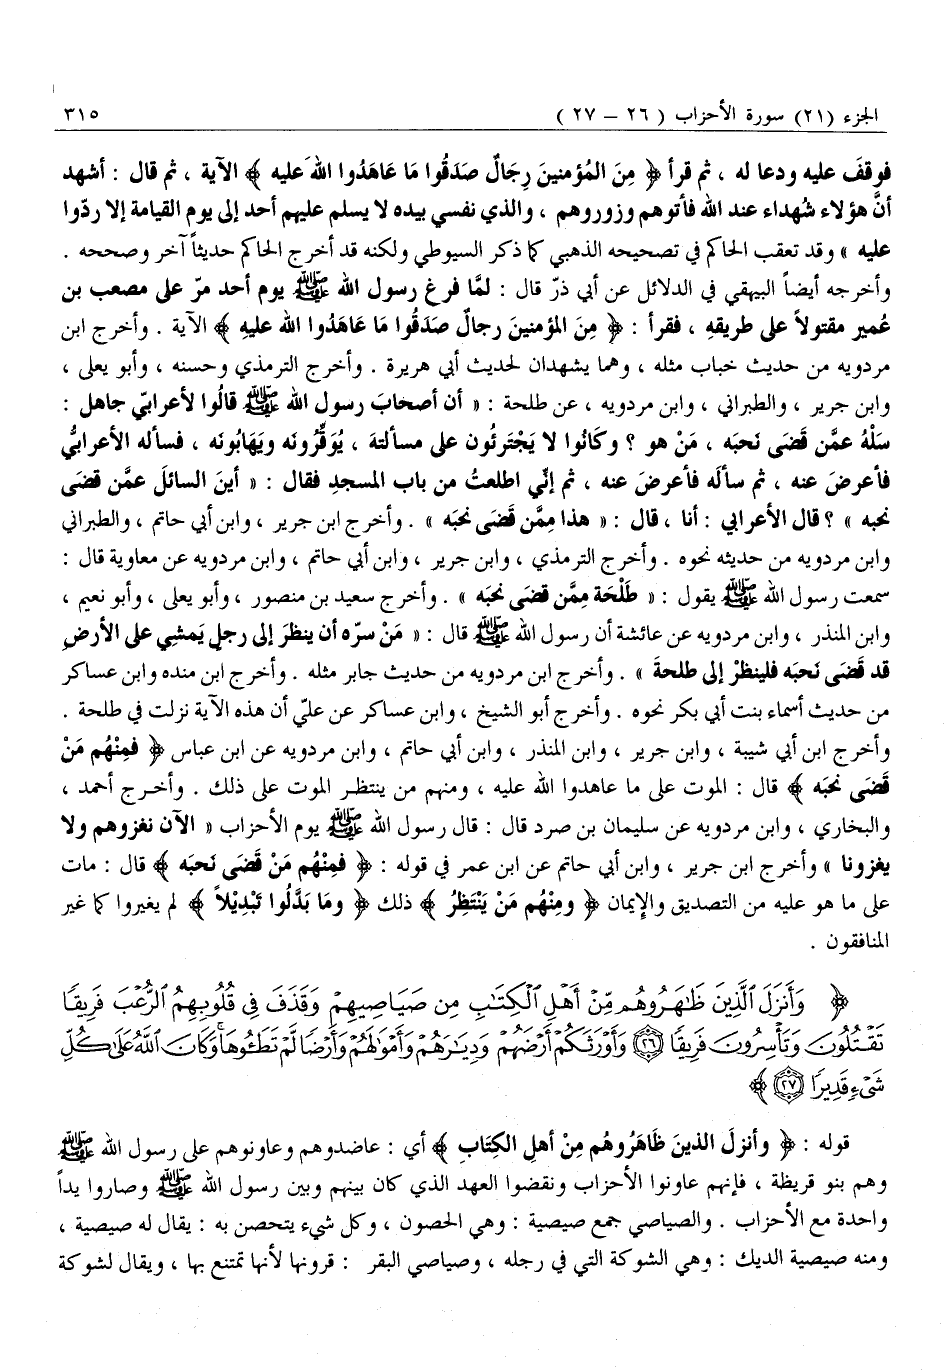 الجزء (٢١) سورة الأحزاب ( ٢٦ - ٢٧ ) ٣١٥
فوقفَ عليه ودعا له ، ثم قرأ ﴿ مِنَ المُؤمنينَ رِجَالٌ صَدَقُوا مَا عَاهَدُوا اللهَ عليه ﴾ الآية ، ثم قال : أشهد
أنَّ هؤلاء شُهداء عند الله فأتوهم وزوروهم ، والذي نفسي بيده لا يسلم عليهم أحد إلى يوم القيامة إلا ردّوا
عليه » وقد تعقب الحاكم في تصحيحه الذهبي كما ذكر السيوطي ولكنه قد أخرج الحاكم حديثاً آخر وصححه .
وأخرجه أيضاً البيهقي في الدلائل عن أبي ذرّ قال : لمَّا فرغ رسول الله ﷺ يوم أحد مرّ على مصعب بن
عُمير مقتولاً على طريقهِ ، فقرأ : ﴿ مِنَ المؤمنينَ رجالٌ صدَقُوا مَا عَاهَدُوا الله عليهِ ﴾ الآية . وأخرج ابن
مردويه من حديث خباب مثله ، وهما يشهدان لحديث أبي هريرة . وأخرج الترمذي وحسنه ، وأبو يعلى ،
وابن جرير ، والطبراني ، وابن مردويه ، عن طلحة : « أن أصحابَ رسول الله ﷺ قالُوا لأعرابّي جاهل :
سَلْهُ عمَّن قَضَى نَحبَه ، مَنْ هو ؟ وكَانُوا لا يَجْتَرئُون على مسألتهَ ، يُوَقِّرُونَه ويَهَابُونَه ، فسأله الأعرابيُّ
فأعرضَ عنه ، ثم سألَه فأعرضَ عنه ، ثم إنّي اطلعتُ من باب المسجدِ فقال : « أينَ السائلَ عمَّن قضَى
نحبه » ؟ قال الأعرابي : أنا ، قال : « هذا مِمَّن قَضَى نَحبَه » . وأخرج ابن جرير ، وابن أبي حاتم ، والطبراني
وابن مردويه من حديثه نحوه . وأخرج الترمذي ، وابن جرير ، وابن أبي حاتم ، وابن مردويه عن معاوية قال :
سمعت رسول الله ﷺ يقول : « طَلْحَة مِمَّن قضَى نحبَه » . وأخرج سعيد بن منصور ، وأبو يعلى ، وأبو نعيم ،
وابن المنذر ، وابن مردويه عن عائشة أن رسول الله ﷺ قال : « مَنْ سرّه أن ينظرَ إلى رجلٍ يَمشِي على الأرضِ
قد قَضَى نَحبَه فلينظرْ إلى طلحةَ » . وأخرج ابن مردويه من حديث جابر مثله . وأخرج ابن منده وابن عساكر
من حديث أسماء بنت أبي بكر نحوه . وأخرج أبو الشيخ ، وابن عساكر عن عليّ أن هذه الآية نزلت في طلحة .
وأخرج ابن أبي شيبة ، وابن جرير ، وابن المنذر ، وابن أبي حاتم ، وابن مردويه عن ابن عباس ﴿ فمِنْهُم مَنْ
قَضَى نحبَه ﴾ قال : الموت على ما عاهدوا الله عليه ، ومنهم من ينتظر الموت على ذلك . وأخرج أحمد ،
والبخاري ، وابن مردويه عن سليمان بن صرد قال : قال رسول الله ﷺ يوم الأحزاب « الآن نغزوهم ولا
يغزونا » وأخرج ابن جرير ، وابن أبي حاتم عن ابن عمر في قوله : ﴿ فمِنْهُم مَنْ قَضَى نَحبَه ﴾ قال : مات
على ما هو عليه من التصديق والإيمان ﴿ ومِنْهُم مَنْ يَنْتَظِرُ ﴾ ذلك ﴿ ومَا بَدَّلُوا تَبْدِيْلاً ﴾ لم يغيروا كما غير
المنافقون .
﴿ وَأَنزَلَ ٱلَّذِينَ ظَٰهَرُوهُم مِّنْ أَهْلِ ٱلْكِتَٰبِ مِن صَيَاصِيهِمْ وَقَذَفَ فِى قُلُوبِهِمُ ٱلرُّعْبَ فَرِيقًا
تَقْتُلُونَ وَتَأْسِرُونَ فَرِيقًا ٢٦ وَأَوْرَثَكُمْ أَرْضَهُمْ وَدِيَٰرَهُمْ وَأَمْوَٰلَهُمْ وَأَرْضًا لَّمْ تَطَـُٔوهَا ۚ وَكَانَ ٱللَّهُ عَلَىٰ كُلِّ
شَىْءٍ قَدِيرًا ٢٧ ﴾
قوله : ﴿ وأنزلَ الذينَ ظَاهَرُوهُم مِنْ أهلِ الكِتَابِ ﴾ أي : عاضدوهم وعاونوهم على رسول الله ﷺ
وهم بنو قريظة ، فإنهم عاونوا الأحزاب ونقضوا العهد الذي كان بينهم وبين رسول الله ﷺ وصاروا يداً
واحدة مع الأحزاب . والصياصي جمع صيصية : وهي الحصون ، وكل شيء يتحصن به : يقال له صيصية ،
ومنه صيصية الديك : وهي الشوكة التي في رجله ، وصياصي البقر : قرونها لأنها تمتنع بها ، ويقال لشوكة